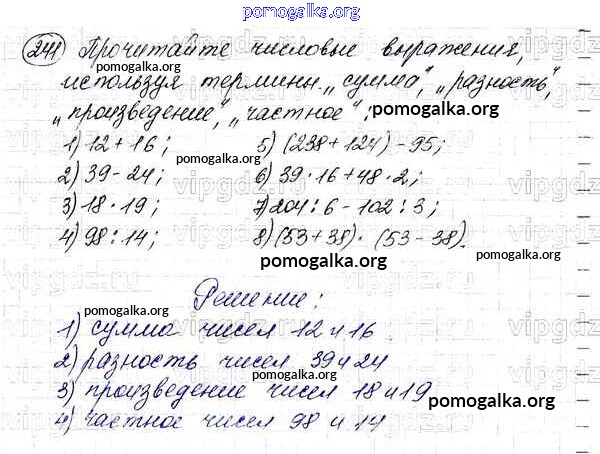 pomogalka.org
241 Прочитайте числовые выражения,
используя термины „сумма", „разность",
„произведение", „частное";
pomogalka.org
1) 12 + 16; 5) (238 + 124) - 95;
pomogalka.org
2) 39 - 24; 6) 39 · 16 + 48 · 2;
3) 18 · 19; 7) 204 : 6 - 102 : 3;
4) 98 : 14; 8) (53 + 38) · (53 - 38).
pomogalka.org
Решение:
pomogalka.org
1) сумма чисел 12 и 16
2) разность чисел 39 и 24
3) произведение чисел 18 и 19
pomogalka.org
4) частное чисел 98 и 14